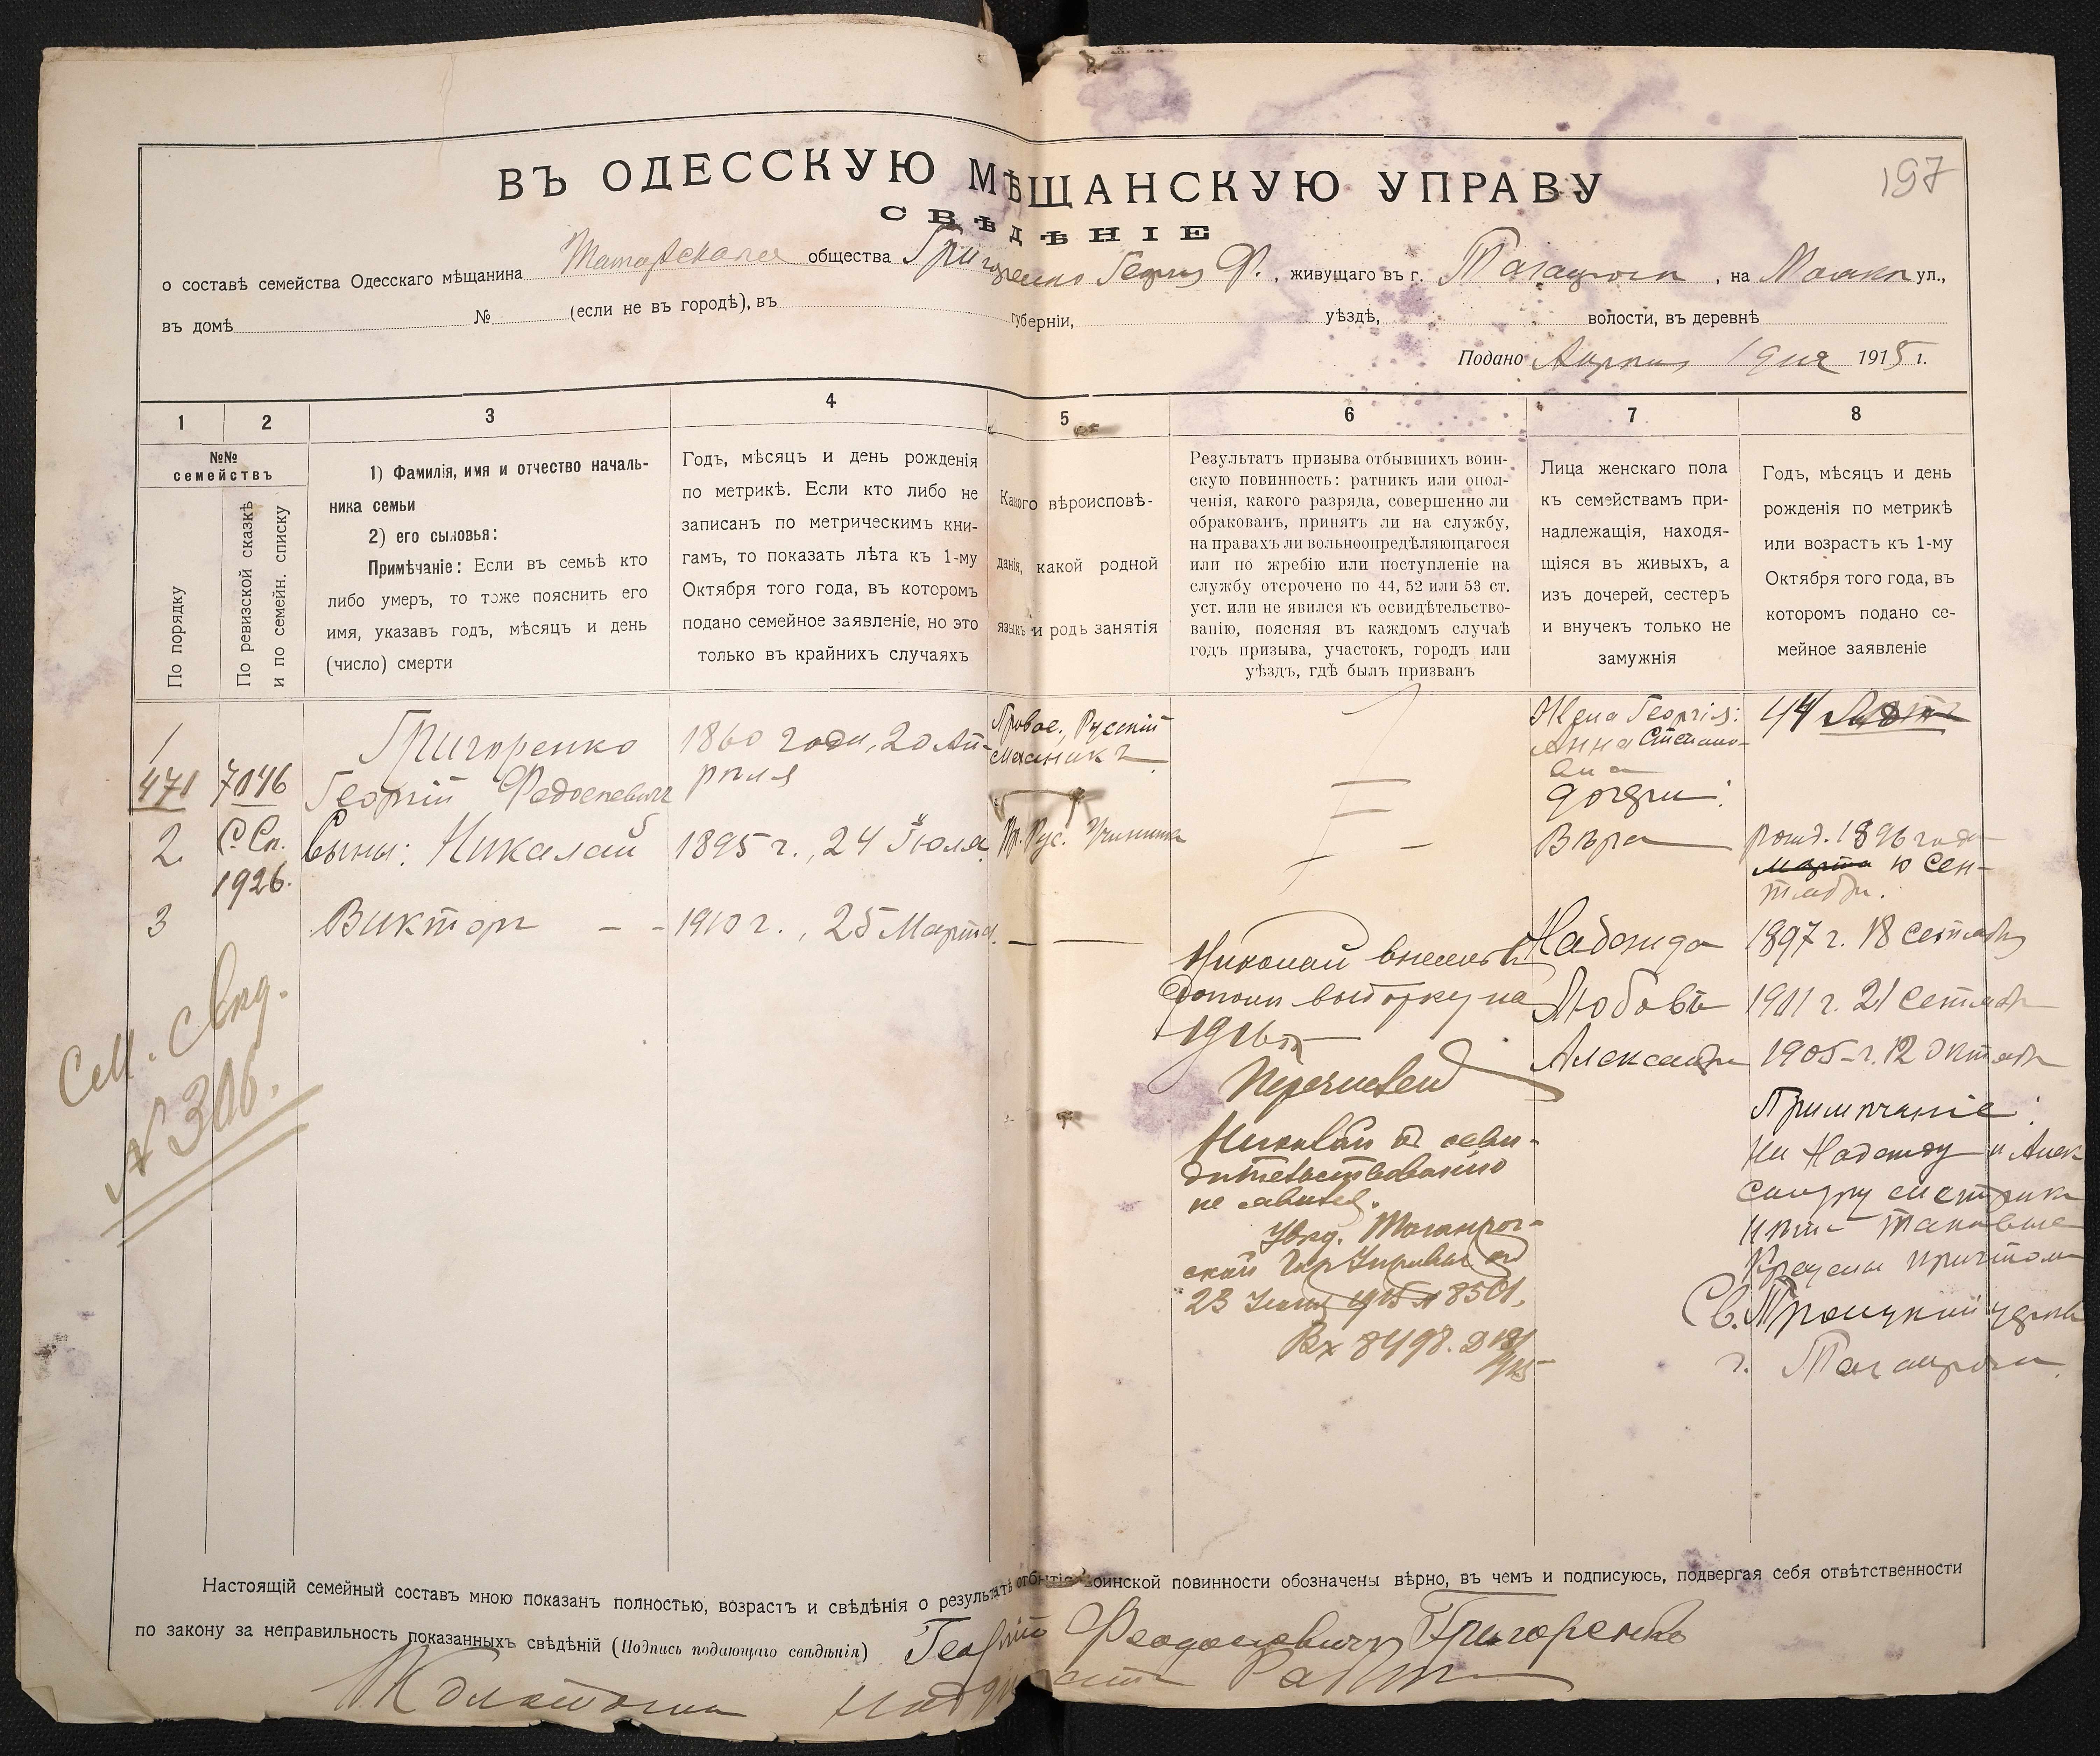 197
ВЪ ОДЕССКУЮ МѢЩАНСКУЮ УПРАВУ
СВѢДѢНІЕ
о составѣ семейства Одесскаго мѣщанина общества Григоренко Георгія Ф., живущаго въ г. Таганрогѣ, на ул.,
въ домѣ № (если не въ городѣ), въ губерніи, уѣздѣ, волости, въ деревнѣ
Подано Апрѣля 1 дня 1915 г.
1 2 3 4 5 6 7 8
№№
семействъ
По порядку
По ревизской сказкѣ
и по семейн. списку
1) Фамилія, имя и отчество началь-
ника семьи
2) его сыновья:
Примѣчаніе: Если въ семьѣ кто
либо умеръ, то тоже пояснить его
имя, указавъ годъ, мѣсяцъ и день
(число) смерти
Годъ, мѣсяцъ и день рожденія
по метрикѣ. Если кто либо не
записанъ по метрическимъ кни-
гамъ, то показать лѣта къ 1-му
Октября того года, въ которомъ
подано семейное заявленіе, но это
только въ крайнихъ случаяхъ
Какого вѣроисповѣ-
данія, какой родной
языкъ и родъ занятія
Результатъ призыва отбывшихъ воин-
скую повинность: ратникъ или опол-
ченія, какого разряда, совершенно ли
обракованъ, принятъ ли на службу,
на правахъ ли вольноопредѣляющагося
или по жребію или поступленіе на
службу отсрочено по 44, 52 или 53 ст.
уст. или не явился къ освидѣтельство-
ванію, поясняя въ каждомъ случаѣ
годъ призыва, участокъ, городъ или
уѣздъ, гдѣ былъ призванъ
Лица женскаго пола
къ семействамъ при-
надлежащія, находя-
щіяся въ живыхъ, а
изъ дочерей, сестеръ
и внучекъ только не
замужнія
Годъ, мѣсяцъ и день
рожденія по метрикѣ
или возрастъ къ 1-му
Октября того года, въ
которомъ подано се-
мейное заявленіе
1
471
7046
Григоренко
Георгій Федосѣевичъ
1860 года, 20 Ап-
рѣля
Правос., Русскій
механикъ
2
С. Сп.
1926.
Сыны: Николай
1895 г., 24 Іюля
Пр. Рус.
3
Викторъ – –
1910 г., 25 Марта.
Сем. свѣд.
№ 306.
Николай внесенъ въ
допол. выборку на
1916 г.
Николай къ осви-
дѣтельствованію
не явился.
Увѣд. Таганрог-
ской Гор. Управы от
23 1915 № 8501.
Вх 8498.
Жена Георгія:
Анна Степано-
вна
дочери:
Вѣра
Надежда
Любовь
Александра
44 лѣтъ
рожд. 1896 года
марта 10 Сен-
тября.
1897 г. 18 Сентября
1901 г. 21 Сентября
1905 г. 12 Октября
Примѣчаніе:
На Надежду и Алек-
сандру метрики
нѣтъ таковыя
Крещены причтомъ
Св. Троицкой церкви
г. Таганрога.
Настоящій семейный составъ мною показанъ полностью, возрастъ и свѣдѣнія о результатѣ отбытія воинской повинности обозначены вѣрно, въ чемъ и подписуюсь, подвергая себя отвѣтственности
по закону за неправильность показанныхъ свѣдѣній (Подпись подающаго свѣдѣнія) Георгій Феодосіевичъ Григоренко